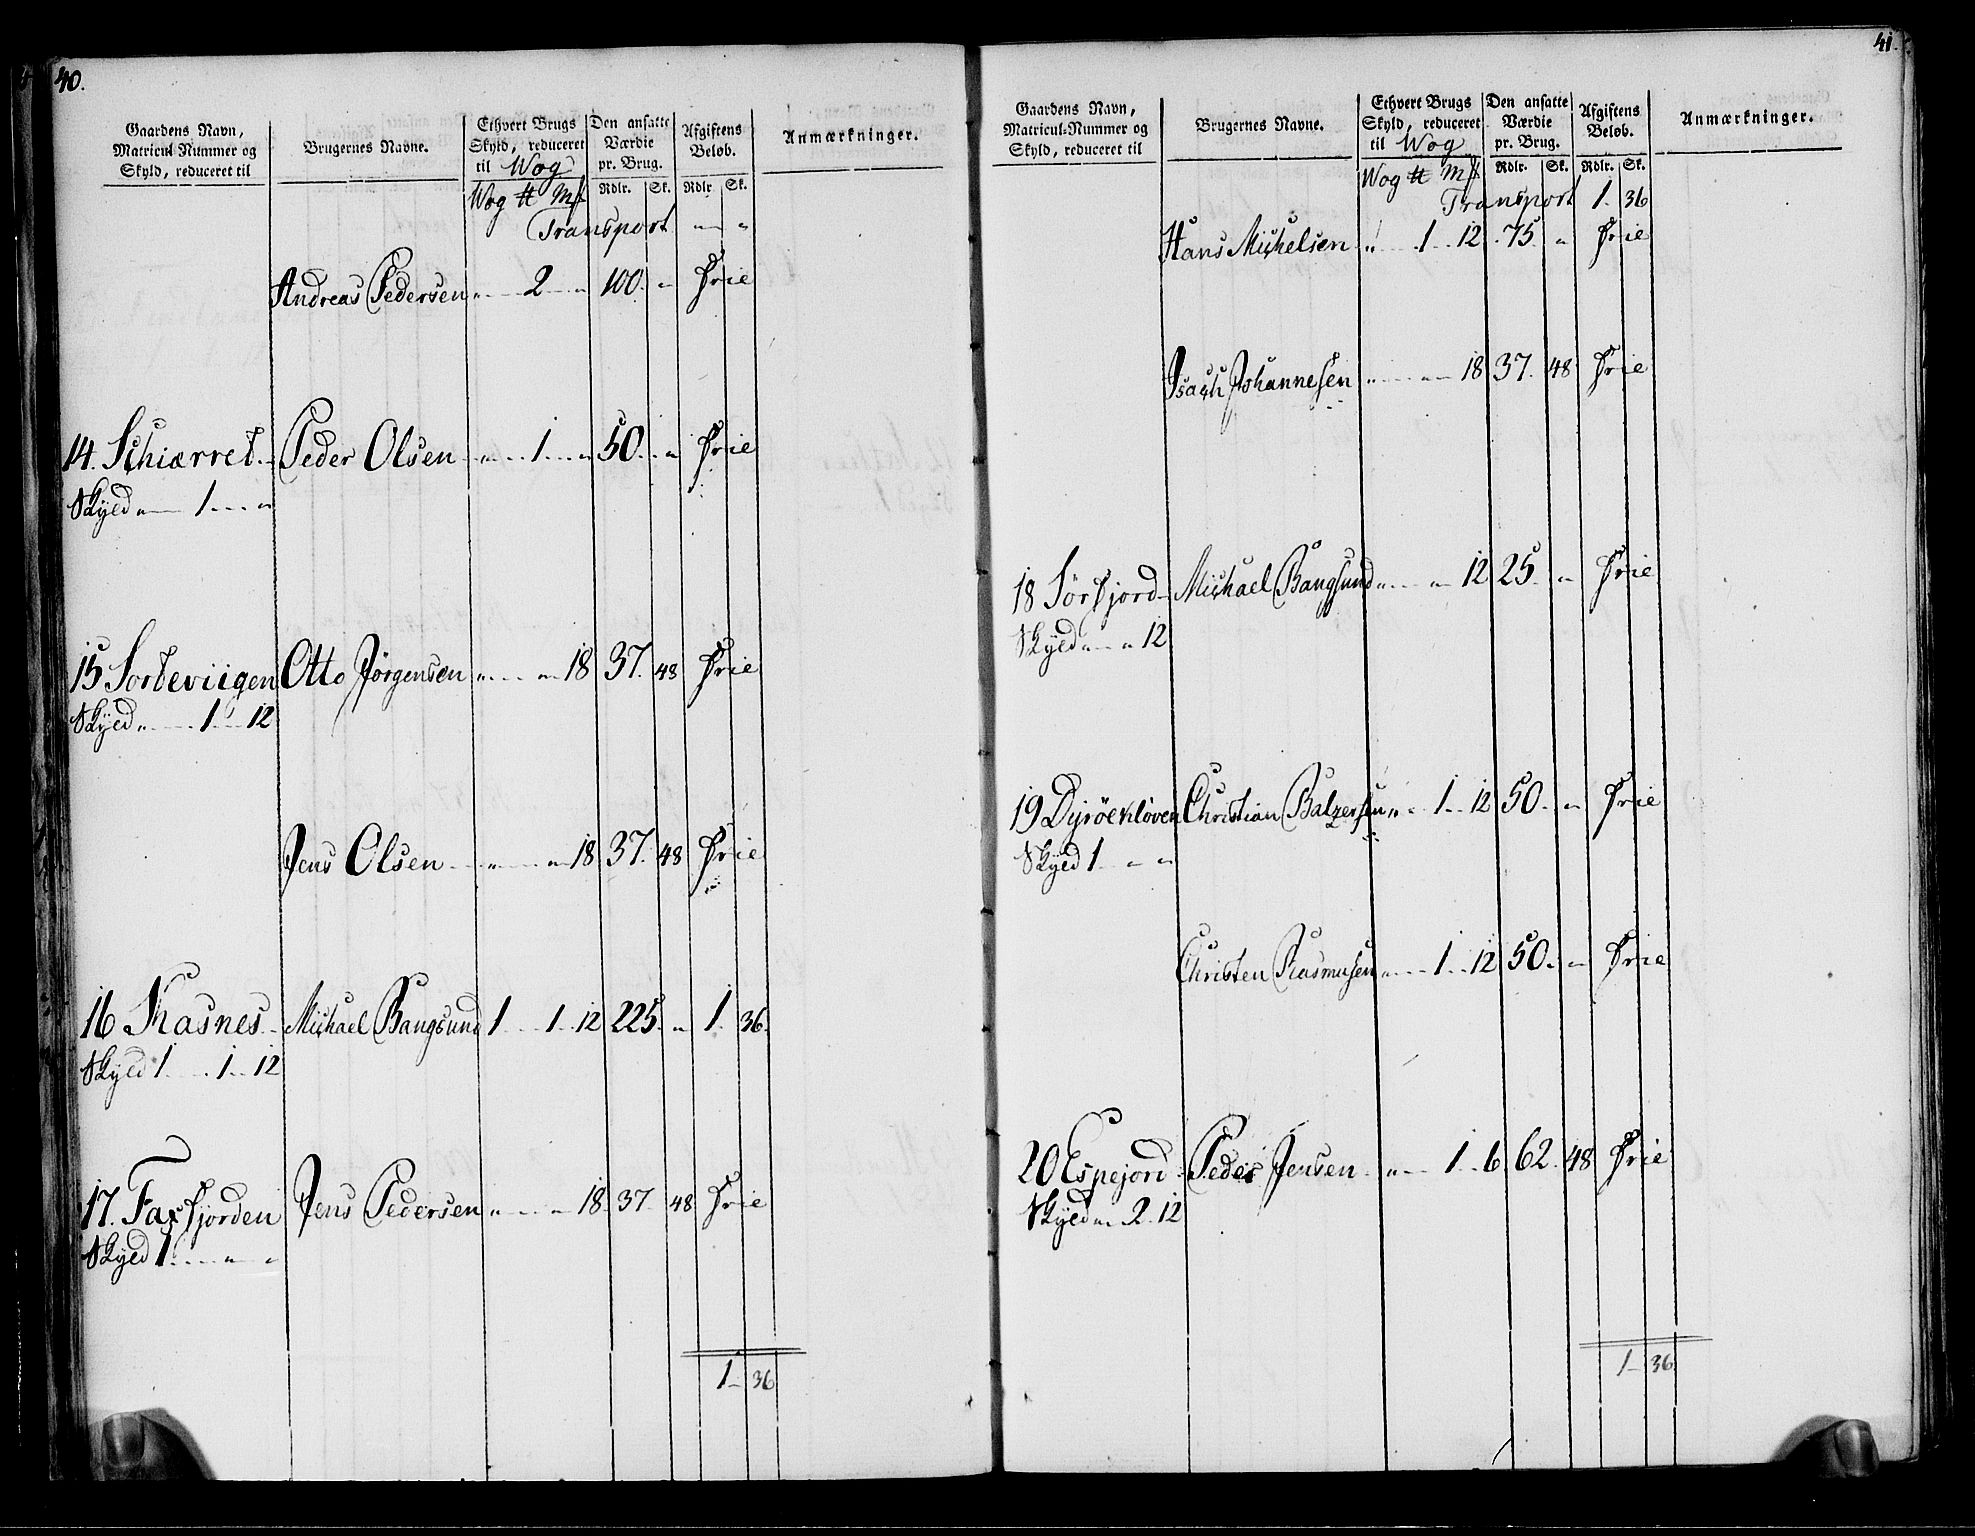 40.
Gaardens Navn, Matricul-Nummer og Skyld, reduceret til | Brugernes Navne. | Ethvert Brugs Skyld, reduceret til Wog | Den ansatte Værdie pr. Brug. | Afgiftens Beløb. | Anmærkninger.
Wog ℔ Mk | Rdlr. | Sk. | Rdlr. | Sk.
Transport " "
Andreas Pedersen " 2 " 100. " Frie
14. Schiærret. Peder Olsen " 1 " 50. " Frie
Skyld " 1 "
15 Sorteviigen Otto Jörgensen " " 18 37. 48 Frie
Skyld " 1 12
Jens Olsen " " 18 37. 48 Frie
16 Kasnes Michael Bangsund 1 1 12 225. " 1. 36.
Skyld 1 1 12
17. Faxfjorden Jens Pedersen " " 18 37. 48 Frie
Skyld 1 " "
1 36
41.
Gaardens Navn, Matricul-Nummer og Skyld, reduceret til | Brugernes Navne. | Ethvert Brugs Skyld, reduceret til Wog | Den ansatte Værdie pr. Brug. | Afgiftens Beløb. | Anmærkninger.
Wog ℔ Mk | Rdlr. | Sk. | Rdlr. | Sk.
Transport 1. 36
Hans Michelsen " 1 12 75. " Frie
Isach Johannesen " " 18 37. 48 Frie
18 Sörfjord Michael Bangsund " " 12 25. " Frie
Skyld " " 12
19 Dyröekløven Christian Balzersen " 1 12 50. " Frie
Skyld 1 " "
Christen Rasmusen " 1 12 50. " Frie
20 Espejord Peder Jensen " 1 6 62. 48 Frie
Skyld " 2 12
1 36